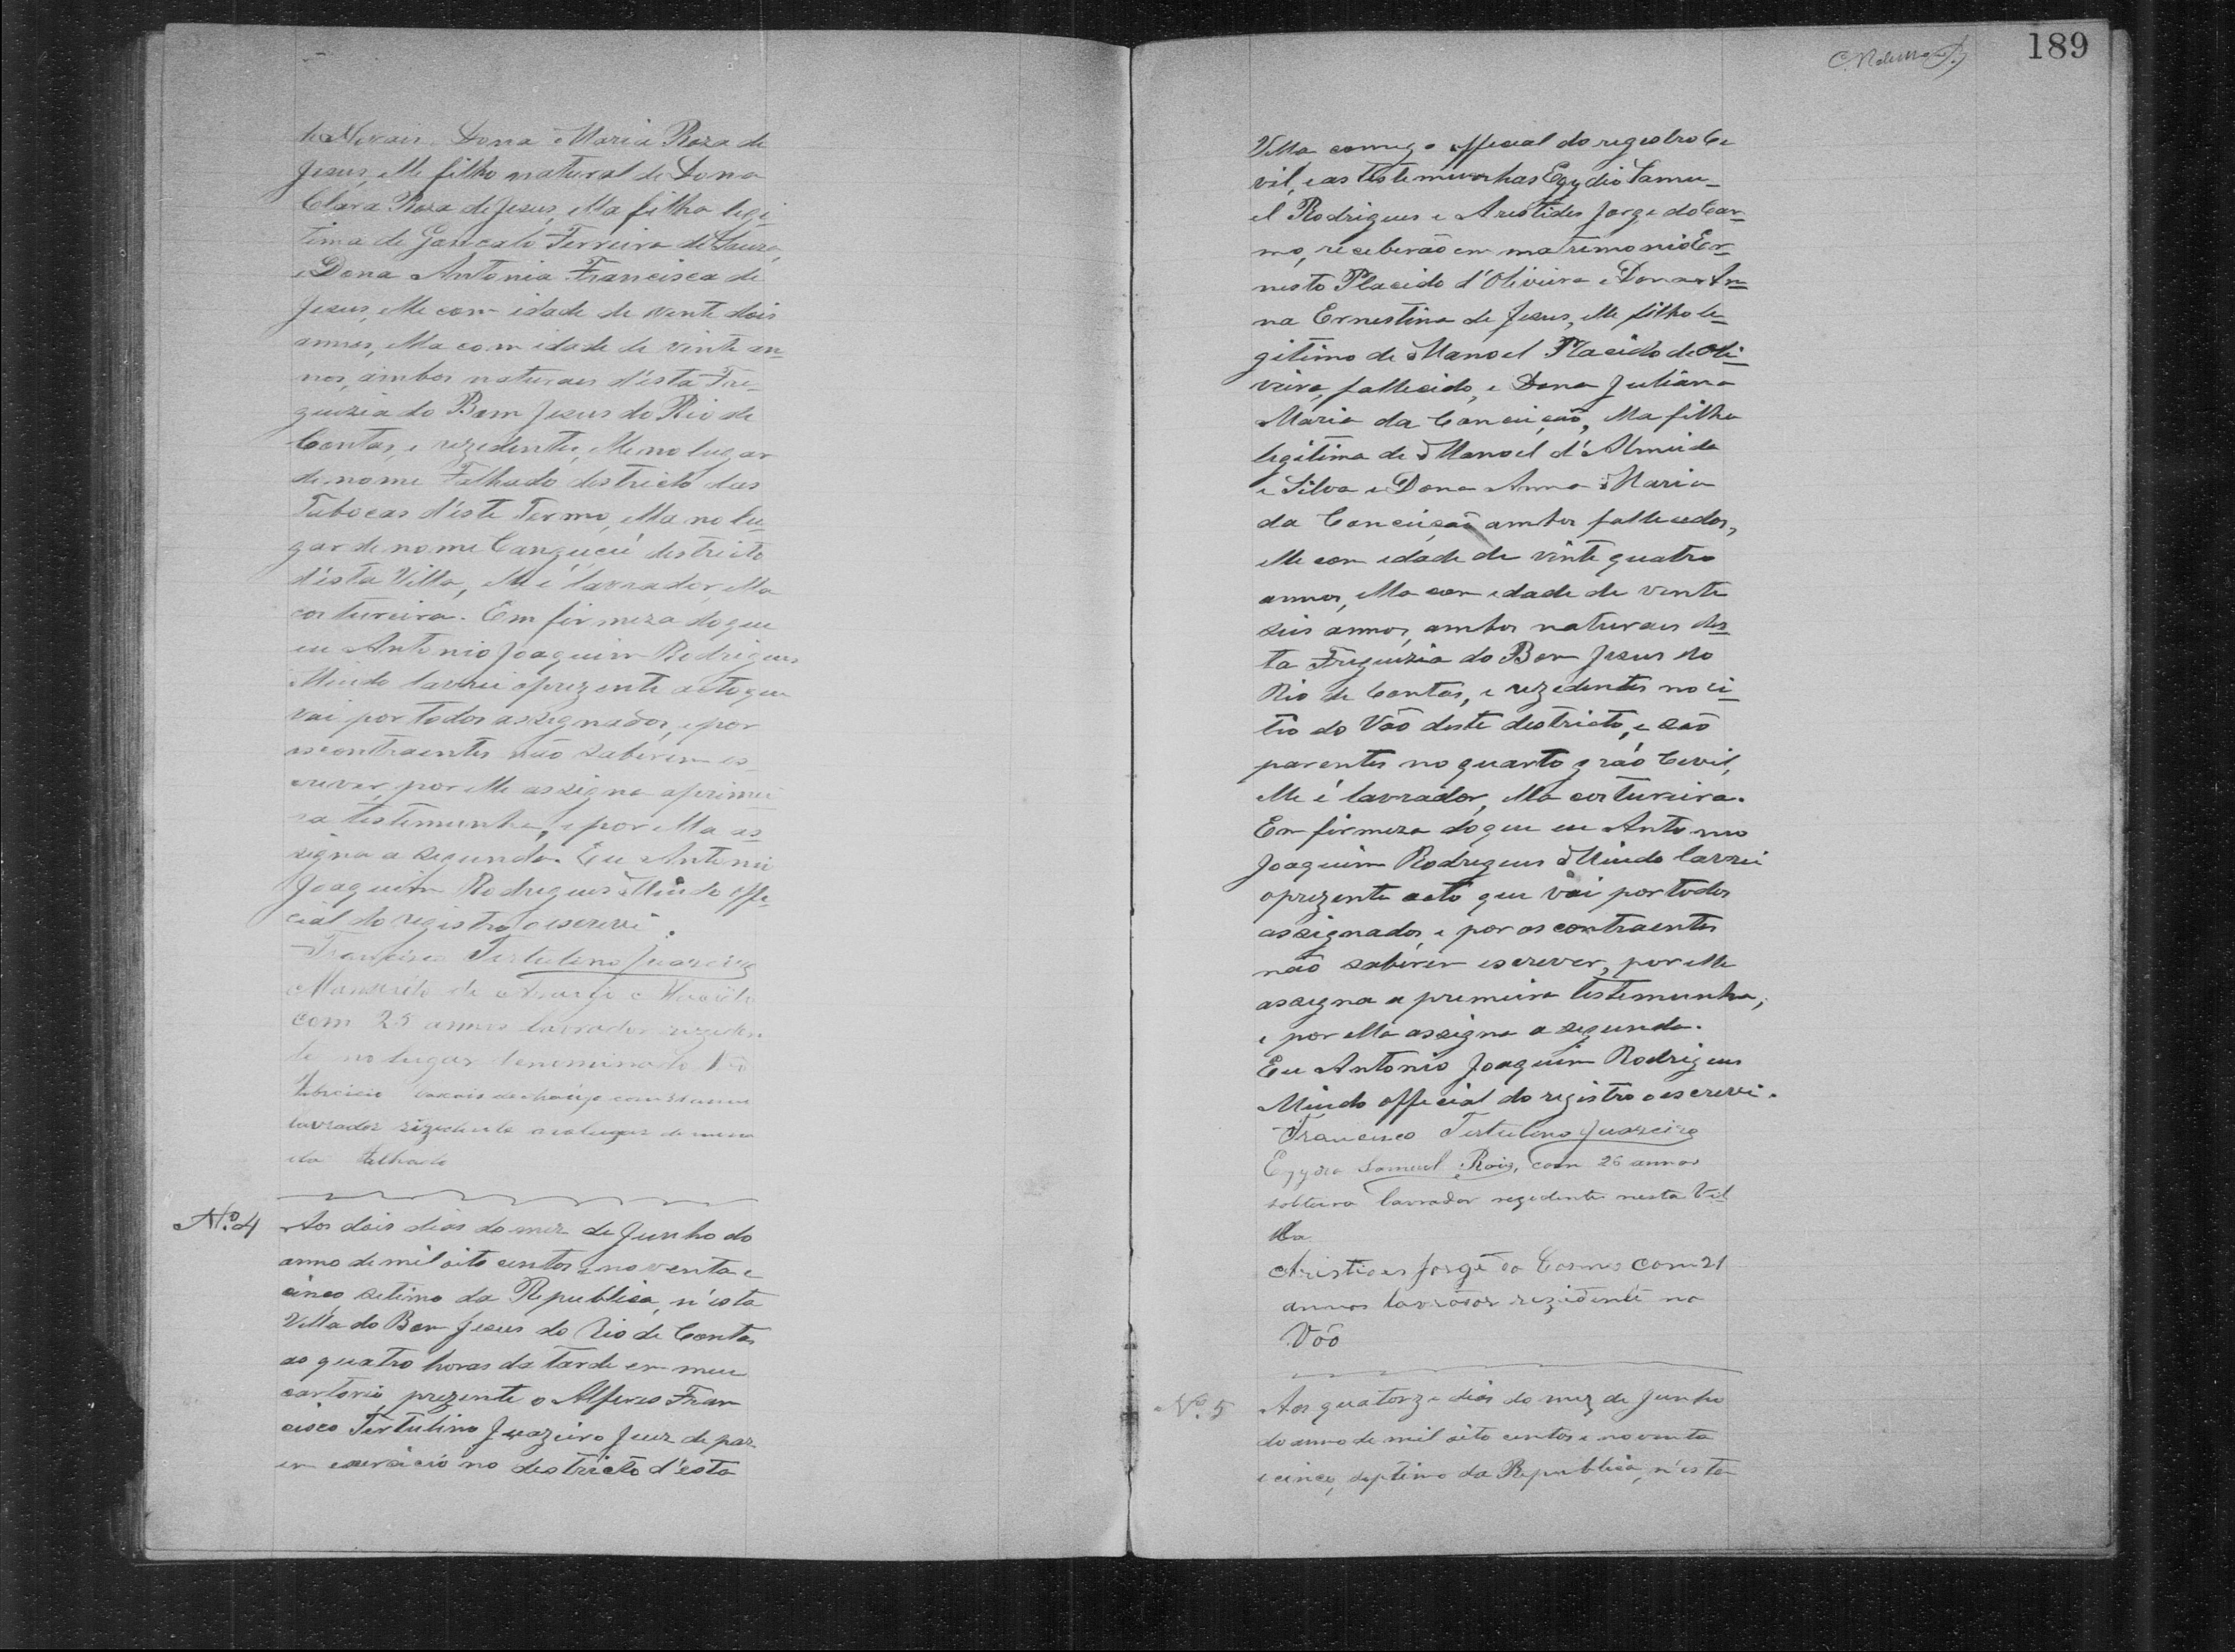 de Novais, Dona Maria Roza de
Jesus, elle filho natural de Dona
Clara Roza de Jesus, ella filha legi
tima de Gancalo Ferreira de Souza,
e Dona Antonia Francisca de
Jesus, elle com idade de vinte dois
annos, ella com idade de vinte an-
nos, ambos naturaes d'esta Fre-
guezia do Bom Jesus do Rio de
Contas, e rezidentes, elle no lugar
de nome Falhado destricto das
Tabocas d'este Termo, ella no lu-
gar de nome Canguçú destricto
d'esta Villa, elle é lavrador, ella
costureira. Em firmeza do que
eu Antonio Joaquim Rodrigues
Miudo lavrei o prezente acto que
vai por todos assignados, e por
os contraentes não saberem es-
crever, por elle assigna a primei
ra testemunha, e por ella as
signa a segunda. Eu Antonio
Joaquim Rodrigues Miudo offi-
cial do registro o escrevi.
Francisco Tertulino Juazeiro
de Araujo
com 25 annos lavrador reziden
te no lugar denominado Vão
lavrador rezidente no lugar de nome
Falhado
Nº. 4 Aos dois dias do mez de Junho do
anno de mil oito centos e noventa e
cinco setimo da Republica, n'esta
Villa do Bom Jesus do Rio de Contas
as quatro horas da tarde em meu
cartorio, prezente o Alferes Fran
cisco Tertulino Juazeiro Juiz de paz
em exercicio no destricto d'esta
189
Villa comigo official do registro Ci
vil, e as testemunhas Egydio Samu-
el Rodrigues e Aristides Jorge do Car-
mo, receberão em matrimonio Er-
nesto Placido d'Oliveira e Dona An-
na Ernestina de Jesus, elle filho le-
gitimo de Manoel Placido de Oli-
veira, fallecido, e Dona Juliana
Maria da Conceição, ella filha
legitima de Manoel d'Almeida
e Silva e Dona Anna Maria
da Conceição ambos fallecidos,
elle com edade de vinte quatro
annos, ella com edade de vinte
seis annos, ambos naturaes des-
ta Freguizia do Bom Jesus do
Rio de Contas, e rezidentes no ci-
tio do Vão deste destricto, e são
parentes no quarto gráo Cevil,
elle é lavrador, ella costureira.
Em firmeza do que eu Antonio
Joaquim Rodrigues Miudo lavrei
o prezente acto que vai por todos
assignados, e por os contraentes
não saberem escrever, por elle
assigna a primeira testemunha,
e por ella assigna a segunda.
Eu Antonio Joaquim Rodrigues
Miudo official do registro o escrevi.
Francisco Tertulino Juazeiro
Egydio Samuel Roiz, com 26 annos
solteiro lavrador rezidente nesta Vil
lla
Aristides Jorge do Carmo com 21
annos lavrador rezidente no
Vão
Nº. 5 Aos quatorze dias do mez de Junho
do anno de mil oito centos e noventa
e cinco, septimo da Republica, n'esta